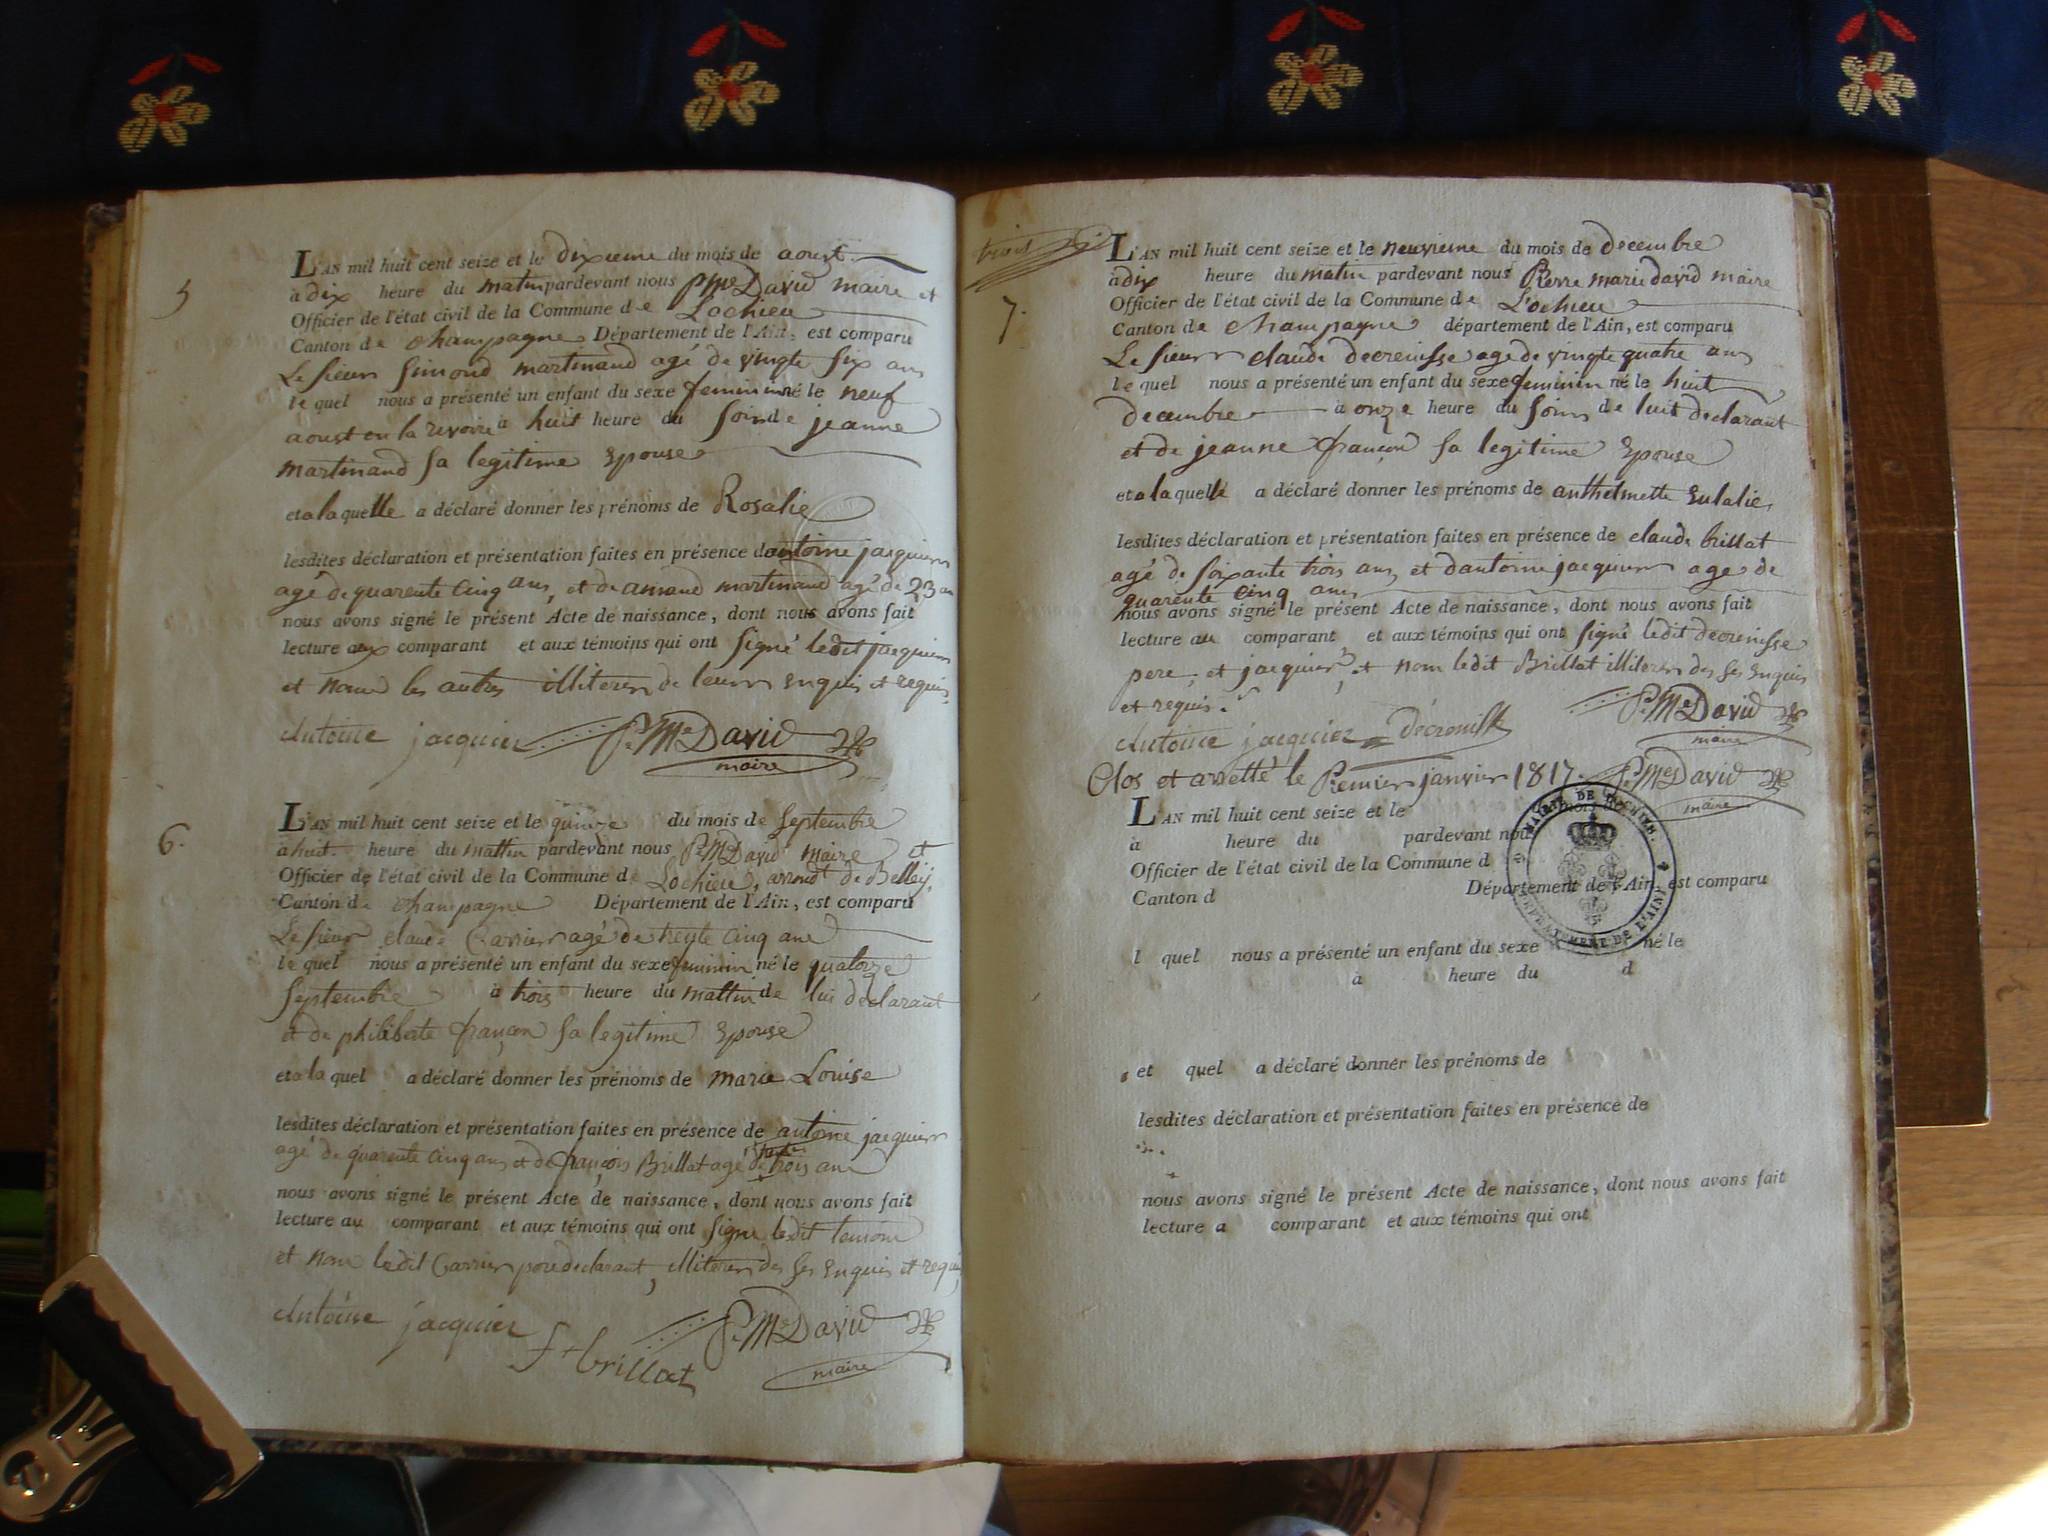 5
L'AN mil huit cent seize et le dixieme du mois de aoust
à dix heure du matin pardevant nous P.re M.ie David maire et
Officier de l'état civil de la Commune de Lochieu
Canton de Champagne Département de l'Ain, est comparu
Le sieur Simond martinand agé de vingte six ans
le quel nous a présenté un enfant du sexe feminin né le neuf
aoust en la rivoire à huit heure du soir de jeanne
martinand sa legitime Epouse
et a la quelle a déclaré donner les prénoms de Rosalie
lesdites déclaration et présentation faites en présence dantoine jacquier
agé de quarente cinq ans, et de amand martinand agé de 23 an
nous avons signé le présent Acte de naissance, dont nous avons fait
lecture aux comparant et aux témoins qui ont signé ledit jacquier
et nom les autres illiteres de leurs Enquis et requis,
Antoine jacquier P.re M.e David
maire
6.
L'AN mil huit cent seize et le quinze du mois de Septembre
à huit heure du mattin pardevant nous P.re M David maire et
Officier de l'état civil de la Commune de Lochieu, arrondt de Belley,
Canton de Champagne Département de l'Ain, est comparu
Le sieur claude Carrier agé de trente cinq ans
le quel nous a présenté un enfant du sexe feminin né le quatorze
Septembre à trois heure du mattin de lui declarant
et de philiberte françon sa legitime Epouse
et a la quel a déclaré donner les prénoms de marie Louise
lesdites déclaration et présentation faites en présence de antoine jacquier
agé de quarente cinq ans et de françois Brillat agé de trois ans
nous avons signé le présent Acte de naissance, dont nous avons fait
lecture au comparant et aux témoins qui ont signe lesdit temoin
et nom ledit Carrier pere declarant, illiteres des ses Enquis et requis
Antoine jacquier P.re M.e David
f.s brillat maire
7.
L'AN mil huit cent seize et le neuvieme du mois de decembre
à dix heure du matin pardevant nous Pierre marie david maire
Officier de l'état civil de la Commune de Lochieu
Canton de Champagne département de l'Ain, est comparu
Le sieur claude decrenisse age de vingte quatre ans
le quel nous a présenté un enfant du sexe feminin né le huit
decembre à onze heure du soir de luit declarant
et de jeanne françon sa legitime Epouse
et a la quelle a déclaré donner les prénoms de anthelmette Eulalie,
lesdites déclaration et présentation faites en présence de claude brillat
agé de soixante trois ans, et dantoine jacquier age de
quarente cinq ans
nous avons signé le présent Acte de naissance, dont nous avons fait
lecture au comparant et aux témoins qui ont signé ledit decrenisse
pere, et jacquier, et nom ledit Brillat illiteres des ses Enquis
et requis.
Antoine jacquier decrenisse P.re M.e David
maire
Clos et arretté le Premier janvier 1817. P.re M.e David
maire
L'AN mil huit cent seize et le mois de
à heure du pardevant nous
Officier de l'état civil de la Commune d
Canton d Département de l'Ain, est comparu
MAIRIE DE LOCHIEU. DEPARTEMENT DE L'AIN
l quel nous a présenté un enfant du sexe né le
à heure du d
et quel a déclaré donner les prénoms de
lesdites déclaration et présentation faites en présence de
nous avons signé le présent Acte de naissance, dont nous avons fait
lecture a comparant et aux témoins qui ont